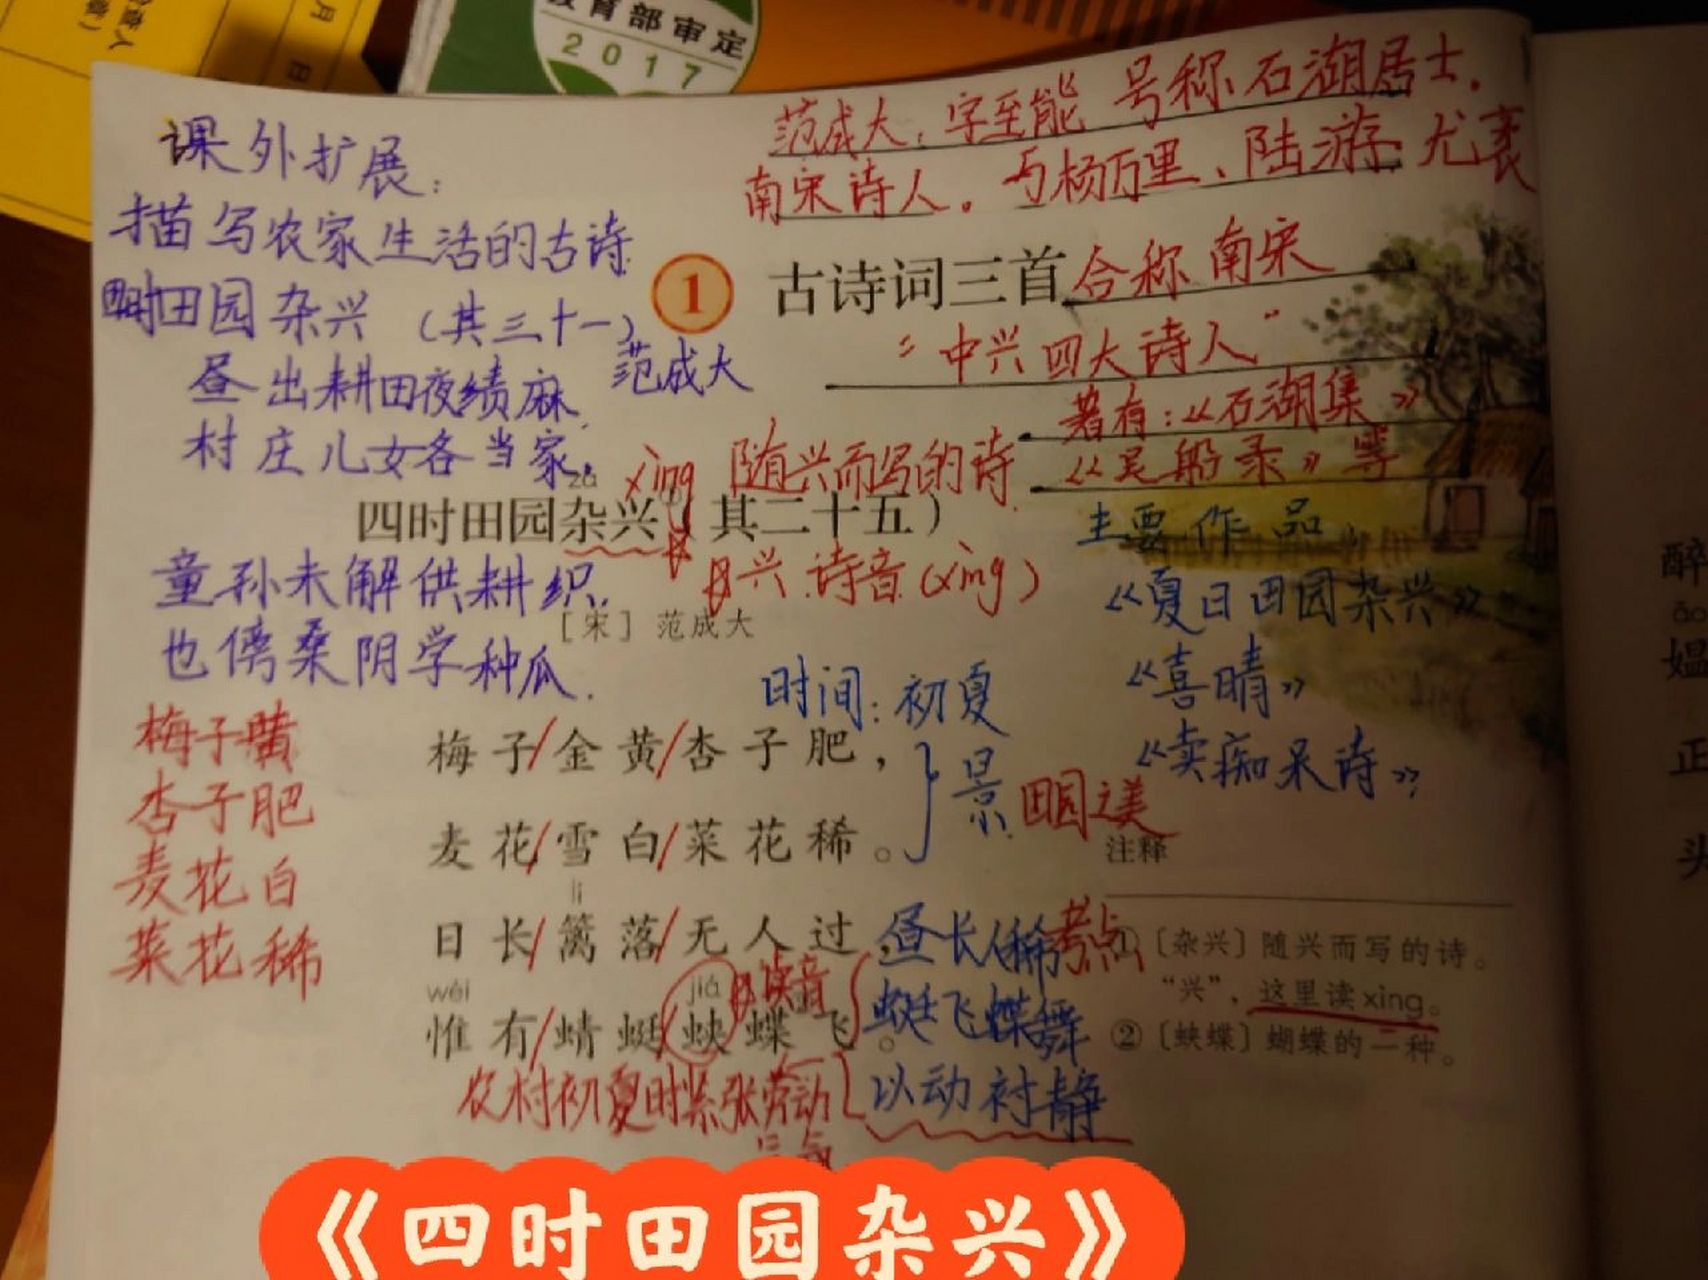 教育部审定
2017
课外扩展：
描写农家生活的古诗
四时田园杂兴（其三十一）
范成大
昼出耕田夜绩麻，
村庄儿女各当家。
童孙未解供耕织，
也傍桑阴学种瓜．
范成大：字至能 号称石湖居士．
南宋诗人。与杨万里、陆游、尤袤
合称南宋
“中兴四大诗人”
著有：《石湖集》
《吴船录》等
1
古诗词三首
zá
xìng 随兴而写的诗
四时田园杂兴（其二十五）
兴 诗音（xìng）
［宋］范成大
主要作品
《夏日田园杂兴》
《喜晴》
《卖痴呆诗》
时间：初夏
梅子/金黄/杏子肥，
麦花/雪白/菜花稀。
景
田园之美
lí
日长/篱落/无人过，
昼长人稀
考点
wéi
jiá
读音
惟有/蜻蜓/蛱蝶飞。
蜓飞蝶舞
农村初夏时紧张劳动
以动衬静
梅子黄
杏子肥
麦花白
菜花稀
注释
①〔杂兴〕随兴而写的诗。
“兴”，这里读xìng。
②〔蛱蝶〕蝴蝶的一种。
醉
媪
正
头
《四时田园杂兴》